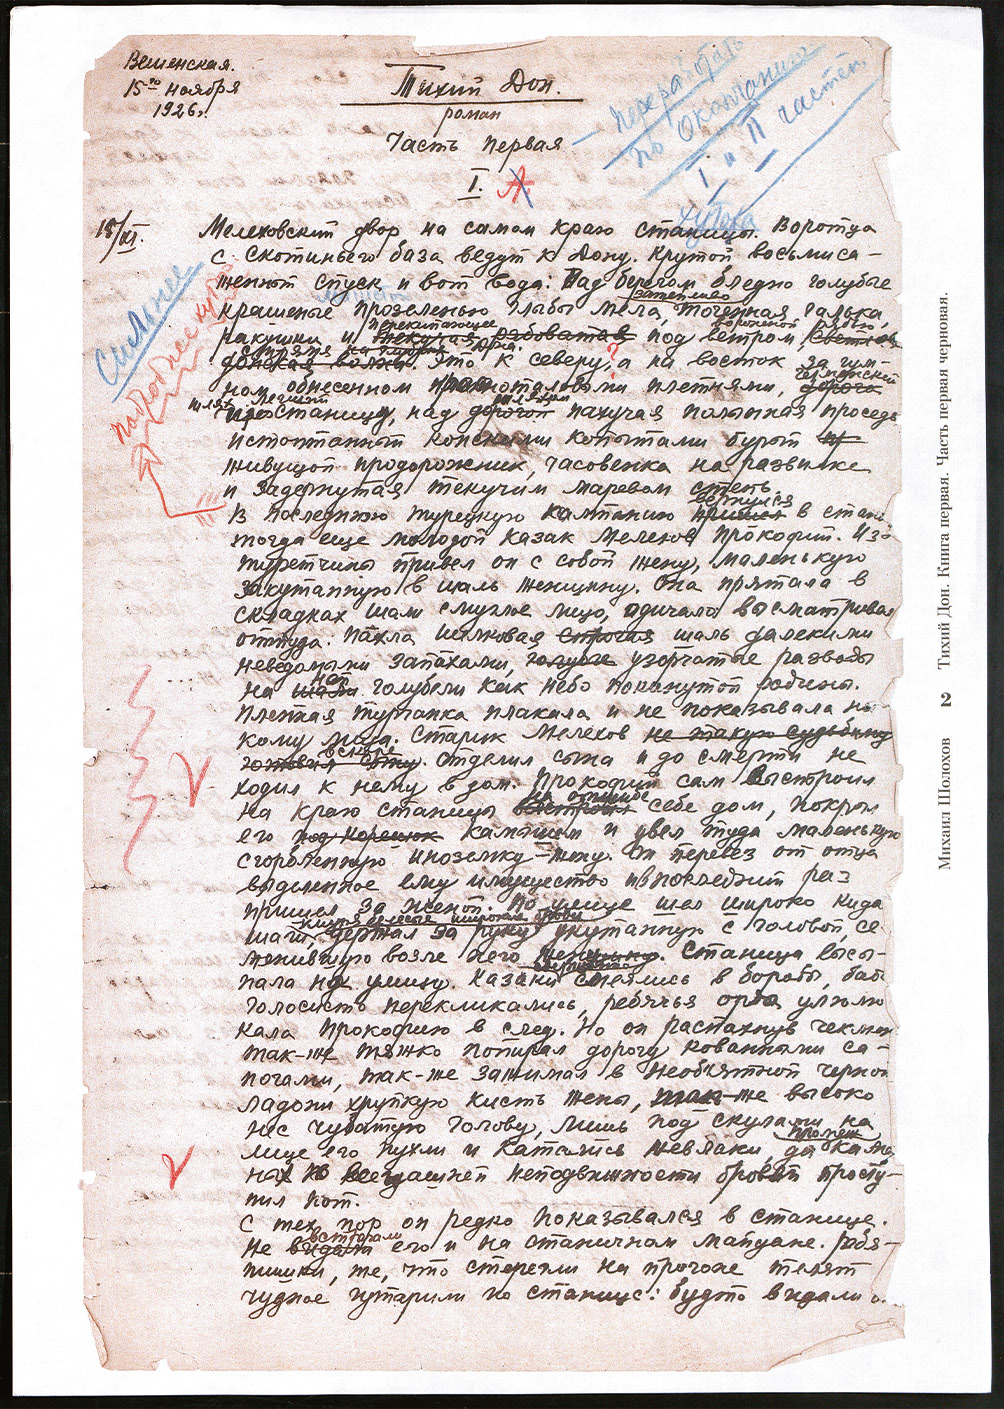 Вешенская.
15го ноября
1926г.
Тихий Дон.
роман
Часть первая
I.
переработать
по окончании
I и II частей.
хутора
15/XI.
сильнее
подробнее
Мелеховский двор на самом краю станицы. Воротца
с скотиньего база ведут к Дону. Крутой, восьмиса-
женный спуск и вот вода: Над берегом бледно голубые
крашеные прозеленью глыбы мела, точенная галька,
ракушки и перекипающее текучая рябоватая под ветром
донская волна. Это к северу, а на восток за гум-
ном обнесенном краснаталовыми плетнями, дорога
шлях через станицу, над дорогой пахучая полынная проседь
истоптанный конскими копытами бурый
живущой придорожник, часовенка на развилке
и задернутая текучим маревом степь.
вернулся
В последнюю турецкую кампанию пришел в стани
тогда еще молодой казак Мелехов Прокофий. Из-
туретчины привел он с собой жену, маленькую
закутанную в шаль женщину. Она прятала в
складках шали смуглое лицо, одичало высматривая
оттуда. Пахла шелковая строгая шаль далекими
неведомыми запахами, голубые узорчатые разводы
на шали ней голубели как небо покинутой родины.
Пленная турчанка плакала и не показывала ни-
кому лица. Старик Мелехов не такую судьбину
вскоре
готовил сыну. Отделил сына и до смерти не
ходил к нему в дом. Прокофий сам выстроил
на краю станицы выстроил себе дом, покрыл
его под корешок камышем и увел туда маленькую
сгорбленную иноземку-жену. Он перевез от отца
выделенное ему имущество и в последний раз
пришел за женой. По улице шел широко кидая
шаги, держал за руку укутанную с головой, се-
менившую возле него женщину. Станица высы-
пала на улицу. Казаки смеялись в бороды, бабы
голосисто перекликались, ребячья орда улюлю
кала Прокофию в след. Но он распахнув чекмень
так-же тяжко попирал дорогу кованными са-
погами, так-же зажимал в необъятной черной
ладони хрупкую кисть жены, так-же высоко
нес чубатую голову, лишь под скулами на
лице его пухли и катались желваки, да
промеж
неподвижности бровей просту-
пил пот.
С тех пор он редко показывался в станице.
встречали
Не видали его и на станичном майдане. Ребя-
тишки, те, что стерегли на прогоне телят
чудное гутарили по станице: будто видали
Михаил Шолохов 2 Тихий Дон. Книга первая. Часть первая черновая.